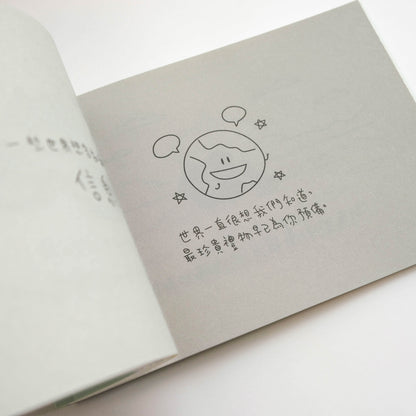 一些世界想
信
世界一直很想我們知道、
最珍貴禮物早已為你預備。